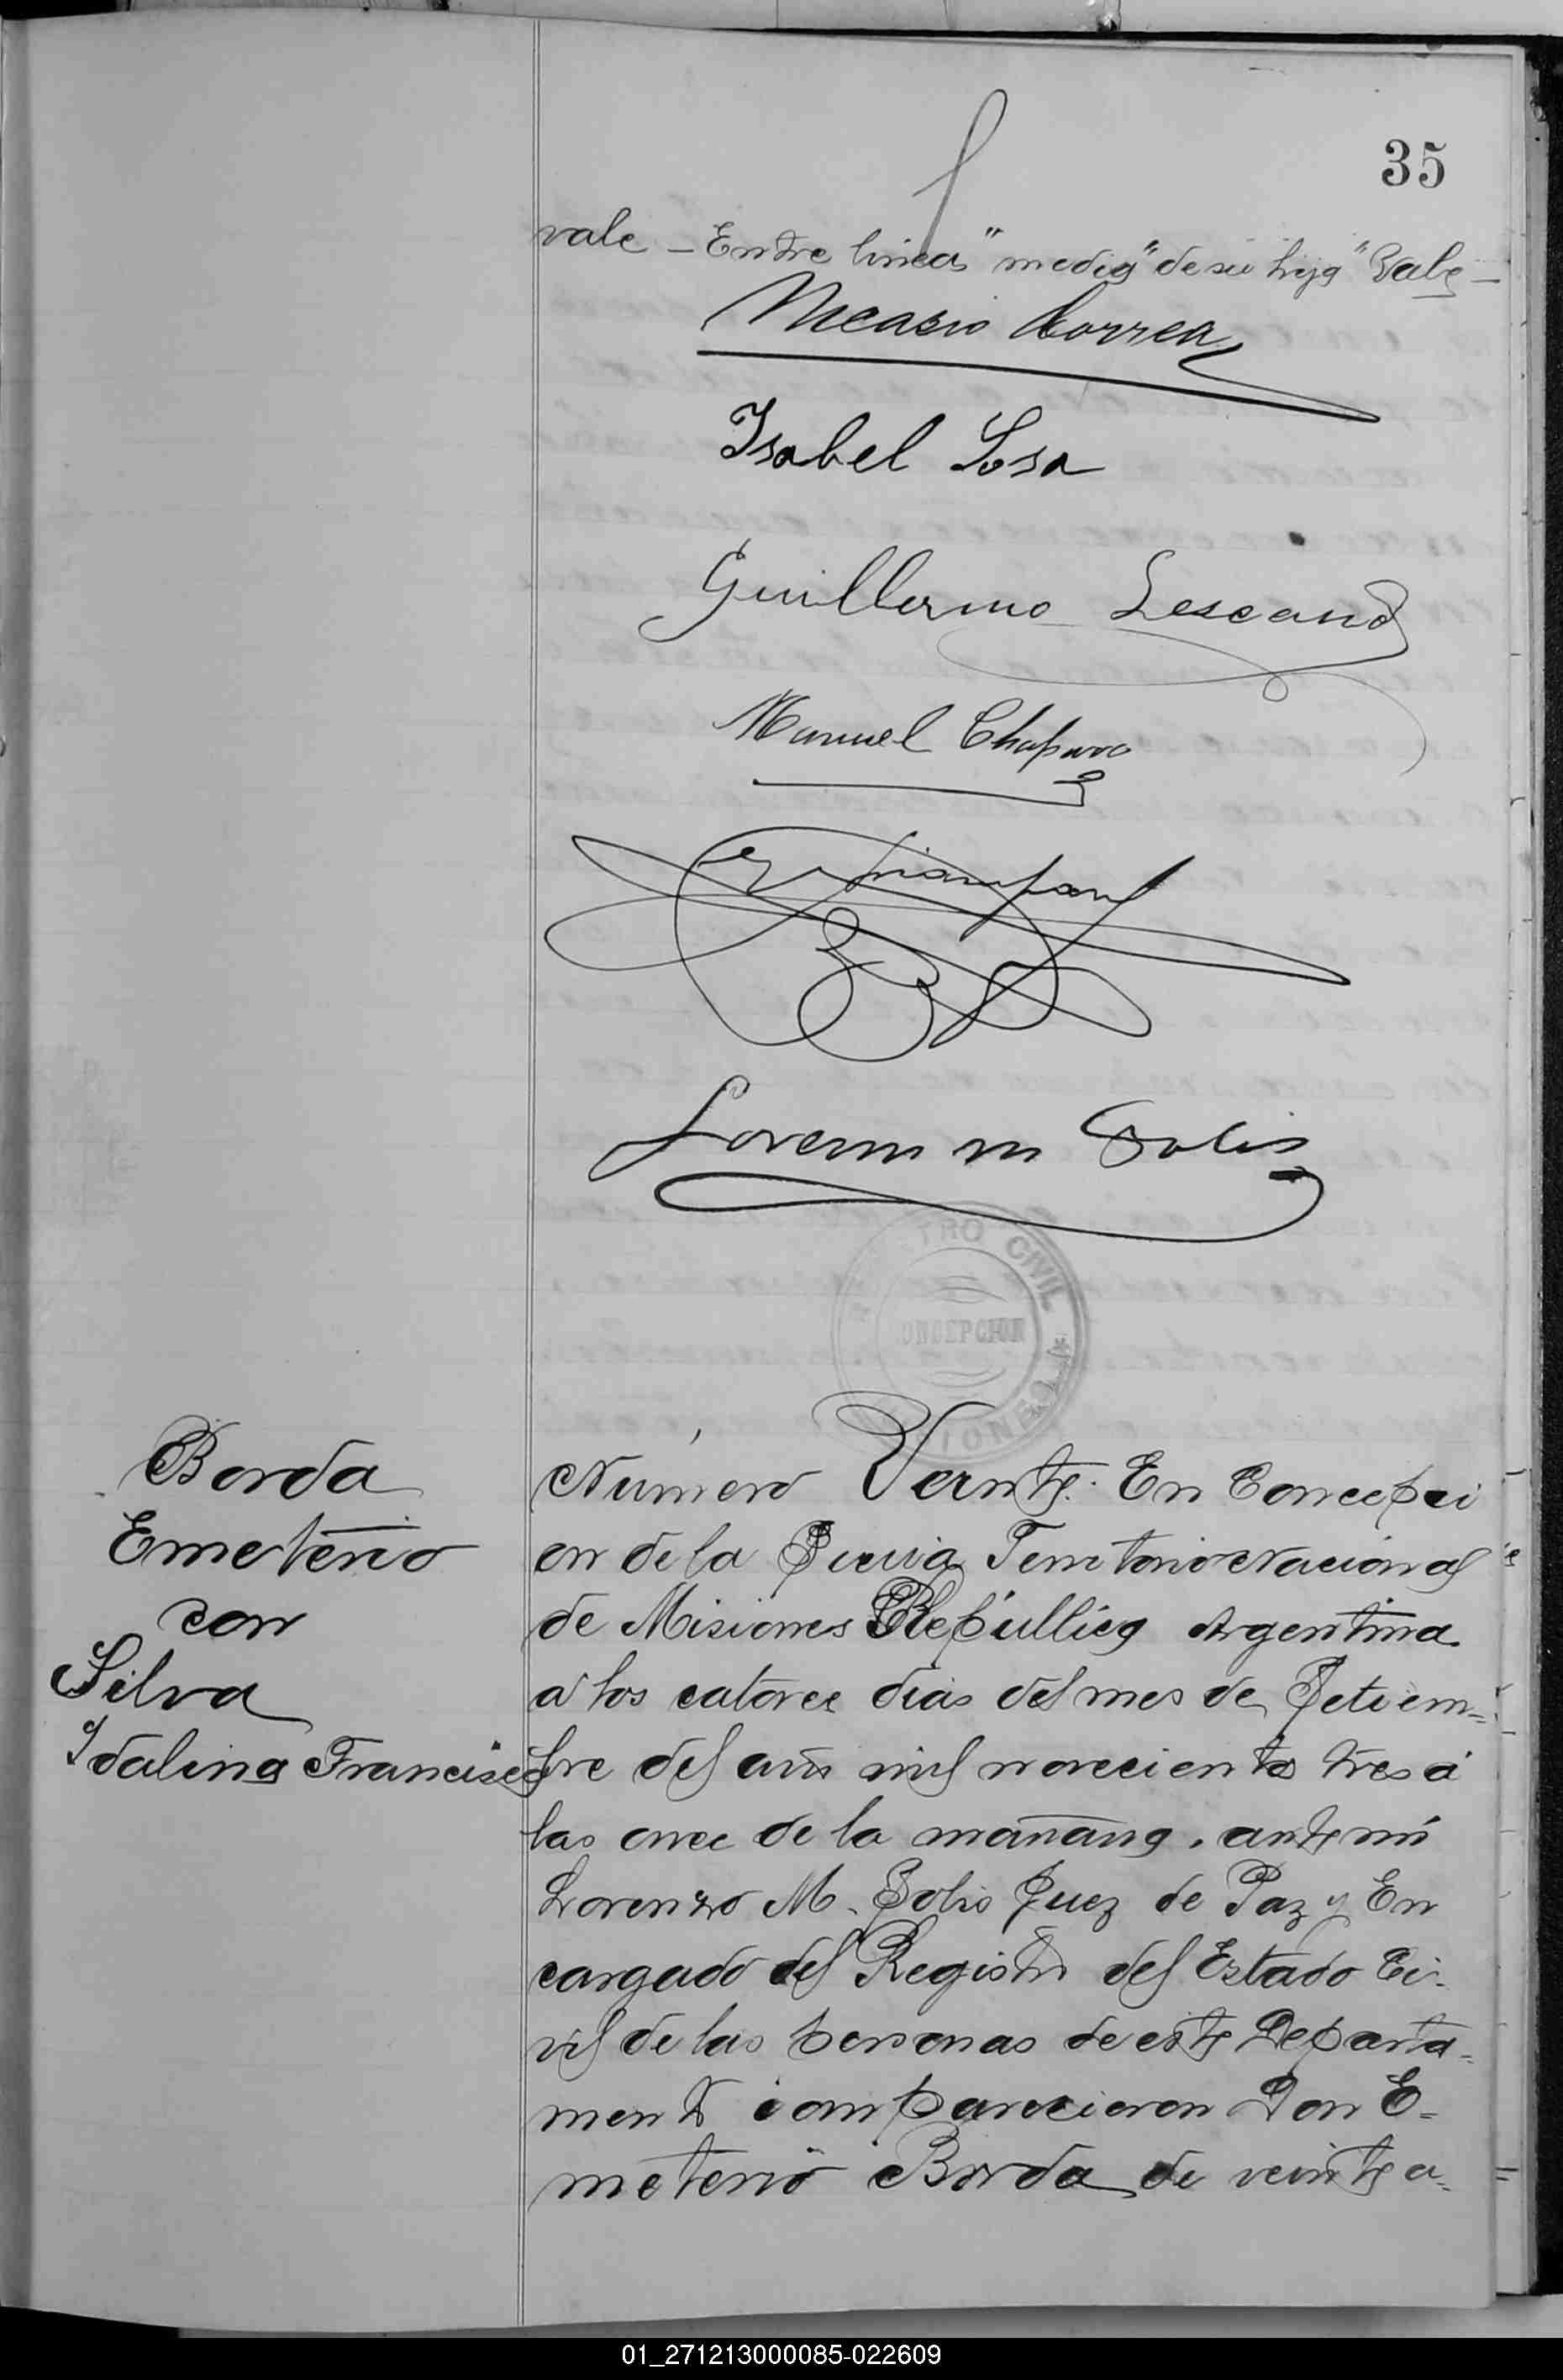 35
vale – Entre lineas "media" "de su hija" Vale –
Nicasio Correa
Isabel Sosa
Guillermo Lescano
Manuel Chaparro
Lorenzo M Solis
REGISTRO CIVIL
CONCEPCION
MISIONES
Borda
Emeterio
con
Silva
Idalina Francisca
Número Veinte. En Concepci
on de la Sierra Territorio Nacional
de Misiones República Argentina
á los catorce dias del mes de Setiem=
bre del año mil novecientos tres á
las once de la mañana, ante mi
Lorenzo M. Solis Juez de Paz y En
cargado del Registro del Estado Ci-
vil de las personas de este Departa=
mento comparecieron Don E=
meterio Borda de veinte a=
01_271213000085-022609